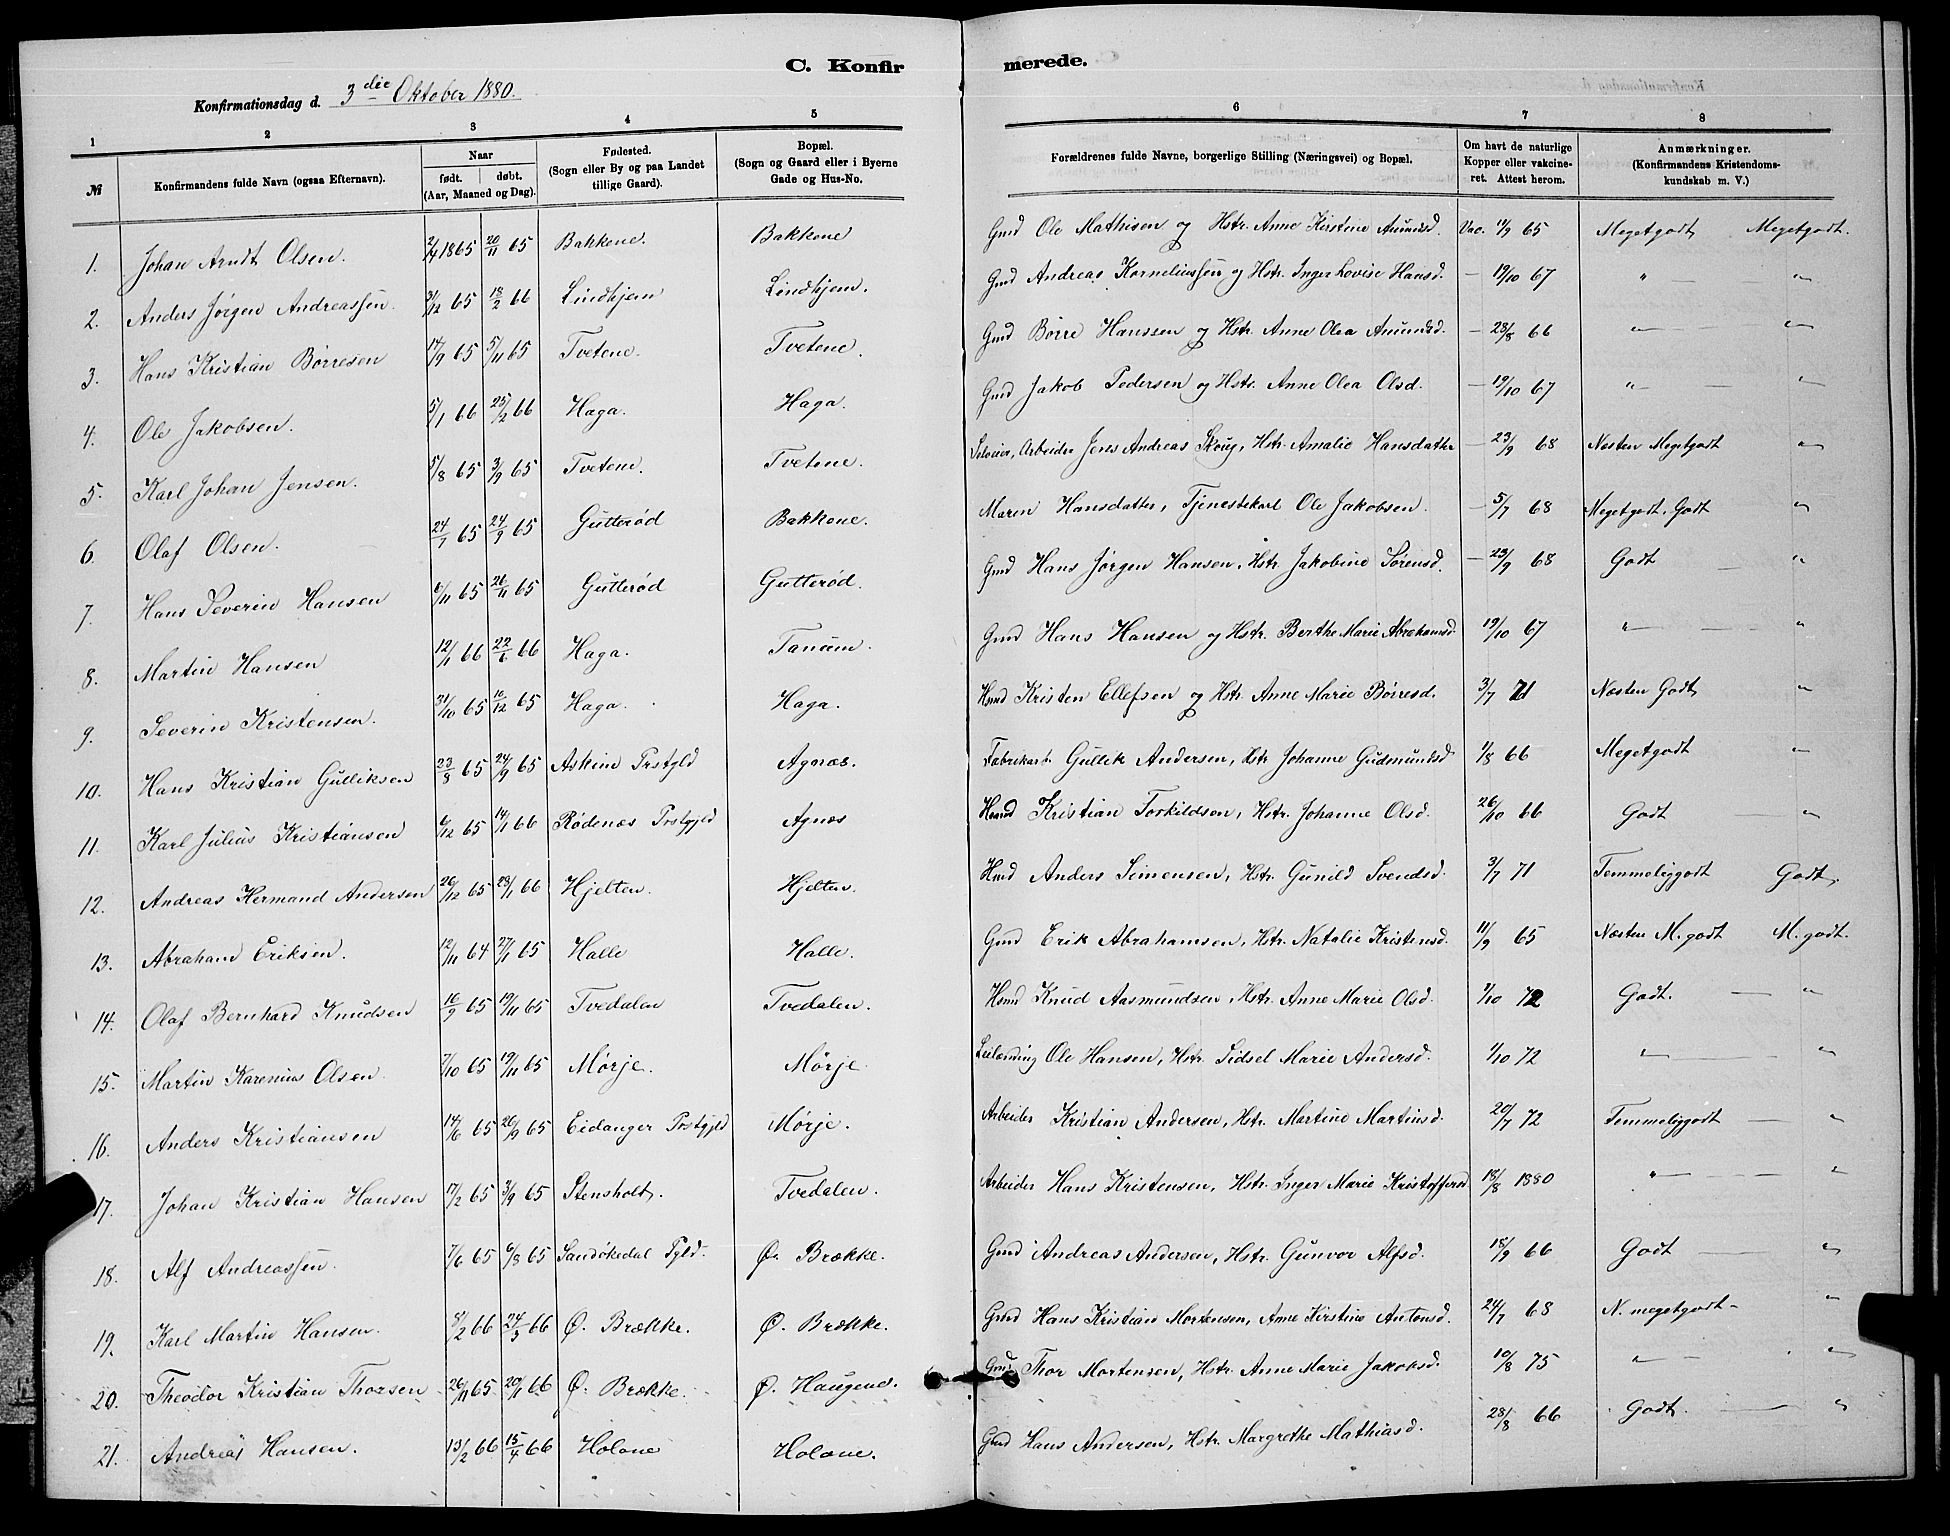 C. Konfir merede.
Konfirmationsdag d. 3die Oktober 1880.
1 2 3 4 5 6 7 8
№ Konfirmandens fulde Navn (ogsaa Efternavn). Naar født. døbt. (Aar, Maaned og Dag). Fødested. (Sogn eller By og paa Landet tillige Gaard). Bopæl. (Sogn og Gaard eller i Byerne Gade og Hus-No. Forældrenes fulde Navne, borgerlige Stilling (Næringsvei) og Bopæl. Om havt de naturlige Kopper eller vakcineret. Attest herom. Anmærkninger. (Konfirmandens Kristendomskundskab m. V.)
1. Johan Arndt Olsen. 2/4 1865 20/11 65 Bakkene. Bakkene Gmd Ole Mathisen og Hstr. Anne Kirstine Amundsd. Vac. 11/9 65 Megetgodt Megetgodt.
2. Anders Jørgen Andreassen. 31/12 65 18/2 66 Lindhjem Lindhjem. Gmd Andreas Korneliussen og Hstr. Inger Lovise Hansd. — 19/10 67 " — "
3. Hans Kristian Børresen 17/9 65 5/11 65 Tvetene. Tvetene. Gmd Børre Hanssen og Hstr. Anne Olea Amundsd. — 28/8 66 " — "
4. Ole Jakobsen. 5/1 66 25/2 66 Haga. Haga. Gmd Jakob Pedersen og Hstr. Anne Olea Olsd. — 19/10 67 " — "
5. Karl Johan Jensen. 5/8 65 3/9 65 Tvetene. Tvetene. Arbeider Jens Andreas Skoug, Hstr. Amalie Hansdatter — 23/9 68 Næsten Megetgodt "
6. Olaf Olsen. 24/7 65 24/9 65 Gutterød Bakkene. Maren Hansdatter, Tjenestekarl Ole Jakobsen. — 5/7 68 Megetgodt. Godt "
7. Hans Severin Hansen 6/11 65 26/11 65 Gutterød Gutterød. Gmd Hans Jørgen Hansen, Hstr. Jakobine Sørensd. — 23/9 68 Godt — "
8. Martin Hansen 12/1 66 22/ 66 Haga. Tanum. Gmd Hans Hansen og Hstr. Berthe Marie Abrahamsd. 19/10 67 " — "
9. Severin Kristensen. 31/10 65 10/12 65 Haga. Haga. Hmd Kristen Ellefsen og Hstr. Anne Marie Børresd. 3/7 71 Næsten Godt "
10. Hans Kristian Gulliksen 23/8 65 24/9 65 Askim Prstgld Agnæs. Fabrikarb. Gullik Andersen, Hstr Johanne Gudmundsd 1/8 66 Megetgodt "
11. Karl Julius Kristiansen 6/12 65 14/1 66 Rødenæs Prstgjld Agnæs Hmd Kristian Torkildsen, Hstr. Johanne Olsd. 26/10 66 Godt — "
12. Andreas Hermand Andersen 26/12 65 28/1 66 Hjelten. Hjelten. Hmd Anders Simensen, Hstr. Gunild Svendsd. 3/7 71 Temmeliggodt Godt.
13. Abraham Eriksen. 12/11 64 27/1 65 Halle Halle. Gmd Erik Abrahamsen, Hstr. Natalie Kristensd. 11/9 65 Næsten M. godt M. godt.
14. Olaf Bernhard Knudsen 10/9 65 19/11 65 Tvedalen Tvedalen. Hmd Knud Aasmundsen, Hstr. Anne Marie Olsd. 1/10 72 Godt. — "
15. Martin Karenius Olsen. 7/10 65 19/11 65 Mørje. Mørje. Leilænding Ole Hansen, Hstr. Sidsel Marie Andersd. 1/10 72 " — "
16. Anders Kristiansen 14/6 65 26/9 65 Eidanger Prstgjld Mørje. Arbeider Kristian Andersen, Hstr. Martine Martinsd. 20/7 72 Temmeliggodt — "
17. Johan Kristian Hansen 17/2 65 3/9 65 Stensholt. Tvedalen. Arbeider Hans Kristensen, Hstr. Inger Marie Kristoffersd 18/8 1880 " — "
18. Alf Andreassen. 7/6 65 6/8 65 Sandøkedal Pgld. Ø. Brække. Gmd Andreas Andersen, Hstr. Gunvor Alfsd. 18/9 66 Godt "
19. Karl Martin Hansen. 8/2 66 24/3 66 Ø. Brække. Ø. Brække. Gmd Hans Kristian Mortensen, Anne Kirstine Antonsd. 24/7 68 N. megetgodt — "
20. Theodor Kristian Thorsen 26/11 65 20/1 66 Ø. Brække. Ø. Haugene. Gmd Thor Mortensen, Hstr. Anne Marie Jakobsd. 10/8 75 " — "
21. Andreas Hansen. 13/2 66 15/4 66 Holane Holane. Gmd Hans Andersen, Hstr. Margrethe Mathiasd. 28/8 66 Godt. — "